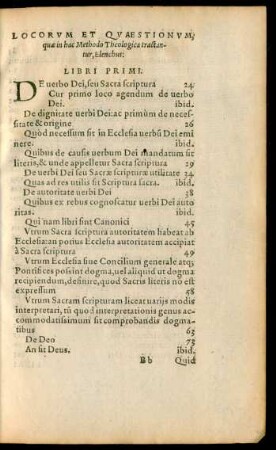 LOCORVM ET QVAESTIONVM,
quæ in hac Methodo Theologica tractan-
tur, Elenchus:
LIBRI PRIMI.
DE verbo Dei, seu Sacra scriptura 24
Cur primo loco agendum de verbo
Dei. ibid.
De dignitate uerbi Dei: ac primùm de neces-
sitate & origine 26
Quòd necessum sit in Ecclesia uerbũ Dei emi
nere. ibid.
Quibus de causis uerbum Dei mandatum sit
literis, & unde appelletur Sacra scriptura 29
De uerbi Dei seu Sacræ scripturæ utilitate 34
Quas ad res utilis sit Scriptura sacra. ibid.
De autoritate uerbi Dei 38
Quibus ex rebus cognoscatur uerbi Dei auto
ritas. ibid.
Qui nam libri sint Canonici 45
Vtrum Sacra scriptura autoritatem habeat ab
Ecclesia: an potius Ecclesia autoritatem accipiat
à Sacra scriptura 49
Vtrum Ecclesia siue Concilium generale atq;
Pontifices possint dogma, uel aliquid ut dogma
recipiendum, definire, quod Sacris literis no est
expressum 58
Vtrum Sacram scripturam liceat uarijs modis
interpretari, tũ quod interpretationis genus ac
commodatissimum sit comprobandis dogma-
tibus 63
De Deo 73
An sit Deus. ibid.
Bb Quid